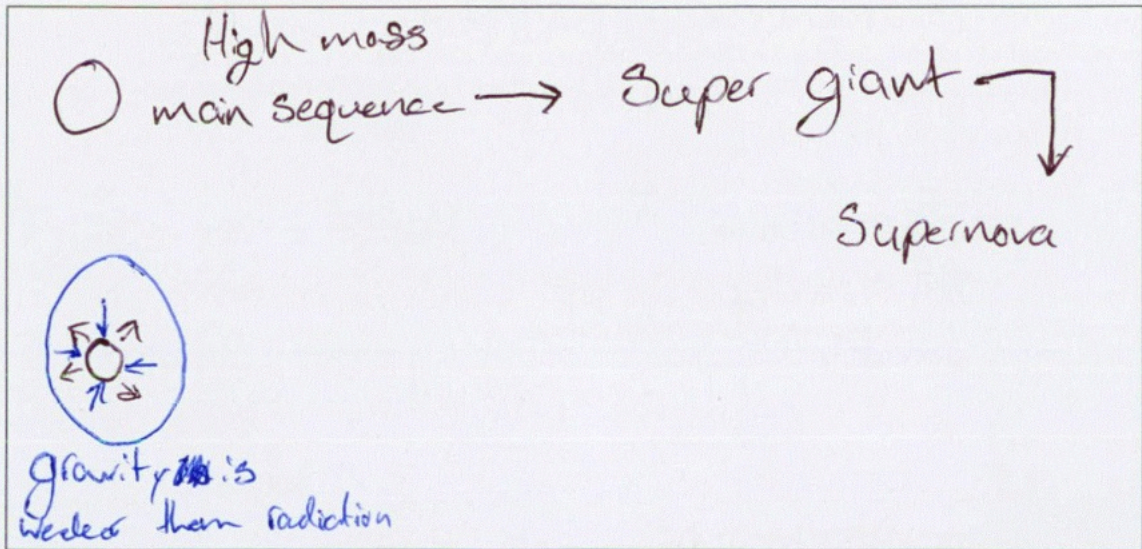 High mass
main sequence → Super giant
Supernova
gravity is
weaker than radiation